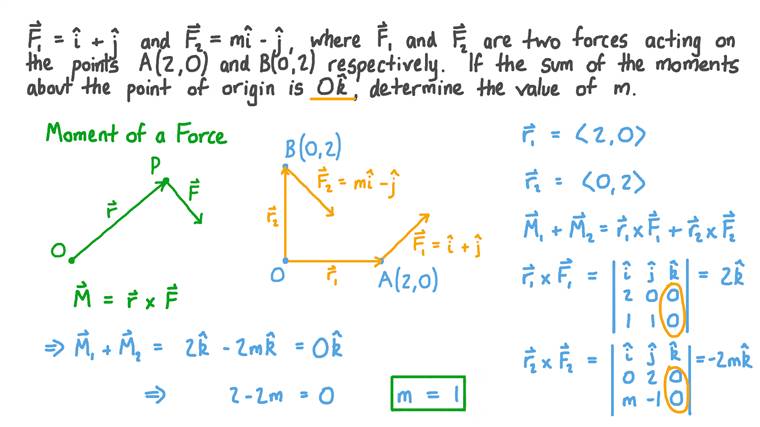 F⃗₁ = î + ĵ and F⃗₂ = mî - ĵ, where F⃗₁ and F⃗₂ are two forces acting on
the points A(2,0) and B(0,2) respectively. If the sum of the moments
about the point of origin is 0k̂, determine the value of m.
Moment of a Force
P
F⃗
r⃗
O
M⃗ = r⃗ × F⃗
B(0,2)
F⃗₂ = mî - ĵ
r⃗₂
F⃗₁ = î + ĵ
O
r⃗₁
A(2,0)
r⃗₁ = ⟨2,0⟩
r⃗₂ = ⟨0,2⟩
M⃗₁ + M⃗₂ = r⃗₁ × F⃗₁ + r⃗₂ × F⃗₂
r⃗₁ × F⃗₁ = | î ĵ k̂ | = 2k̂
2 0 0
1 1 0
r⃗₂ × F⃗₂ = | î ĵ k̂ | = -2mk̂
0 2 0
m -1 0
⇒ M⃗₁ + M⃗₂ = 2k̂ - 2mk̂ = 0k̂
⇒ 2 - 2m = 0
m = 1